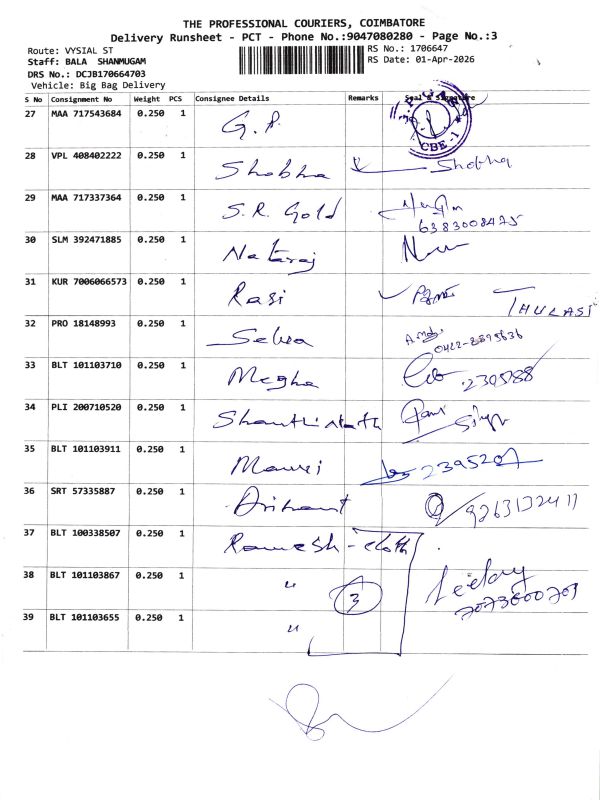 THE PROFESSIONAL COURIERS, COIMBATORE
Delivery Runsheet - PCT - Phone No.:9047080280 - Page No.:3
Route: VYSIAL ST
RS No.: 1706647
Staff: BALA SHANMUGAM
RS Date: 01-Apr-2026
DRS No.: DCJB170664703
Vehicle: Big Bag Delivery
S No Consignment No Weight PCS Consignee Details Remarks Seal & Signature
27 MAA 717543684 0.250 1 G.P.
CBE-1
28 VPL 408402222 0.250 1 Shobha Shobha
29 MAA 717337364 0.250 1 S.R. Gold
6383008475
30 SLM 392471885 0.250 1 Nataraj
31 KUR 7006066573 0.250 1 Rasi THULASI
32 PRO 18148993 0.250 1 Selva
33 BLT 101103710 0.250 1 Megha
34 PLI 200710520 0.250 1 Shanthi Nath
35 BLT 101103911 0.250 1 2395207
36 SRT 57335887 0.250 1 Arihant
37 BLT 100338507 0.250 1 Ramesh - cloth
38 BLT 101103867 0.250 1 " 3
7073000709
39 BLT 101103655 0.250 1 "